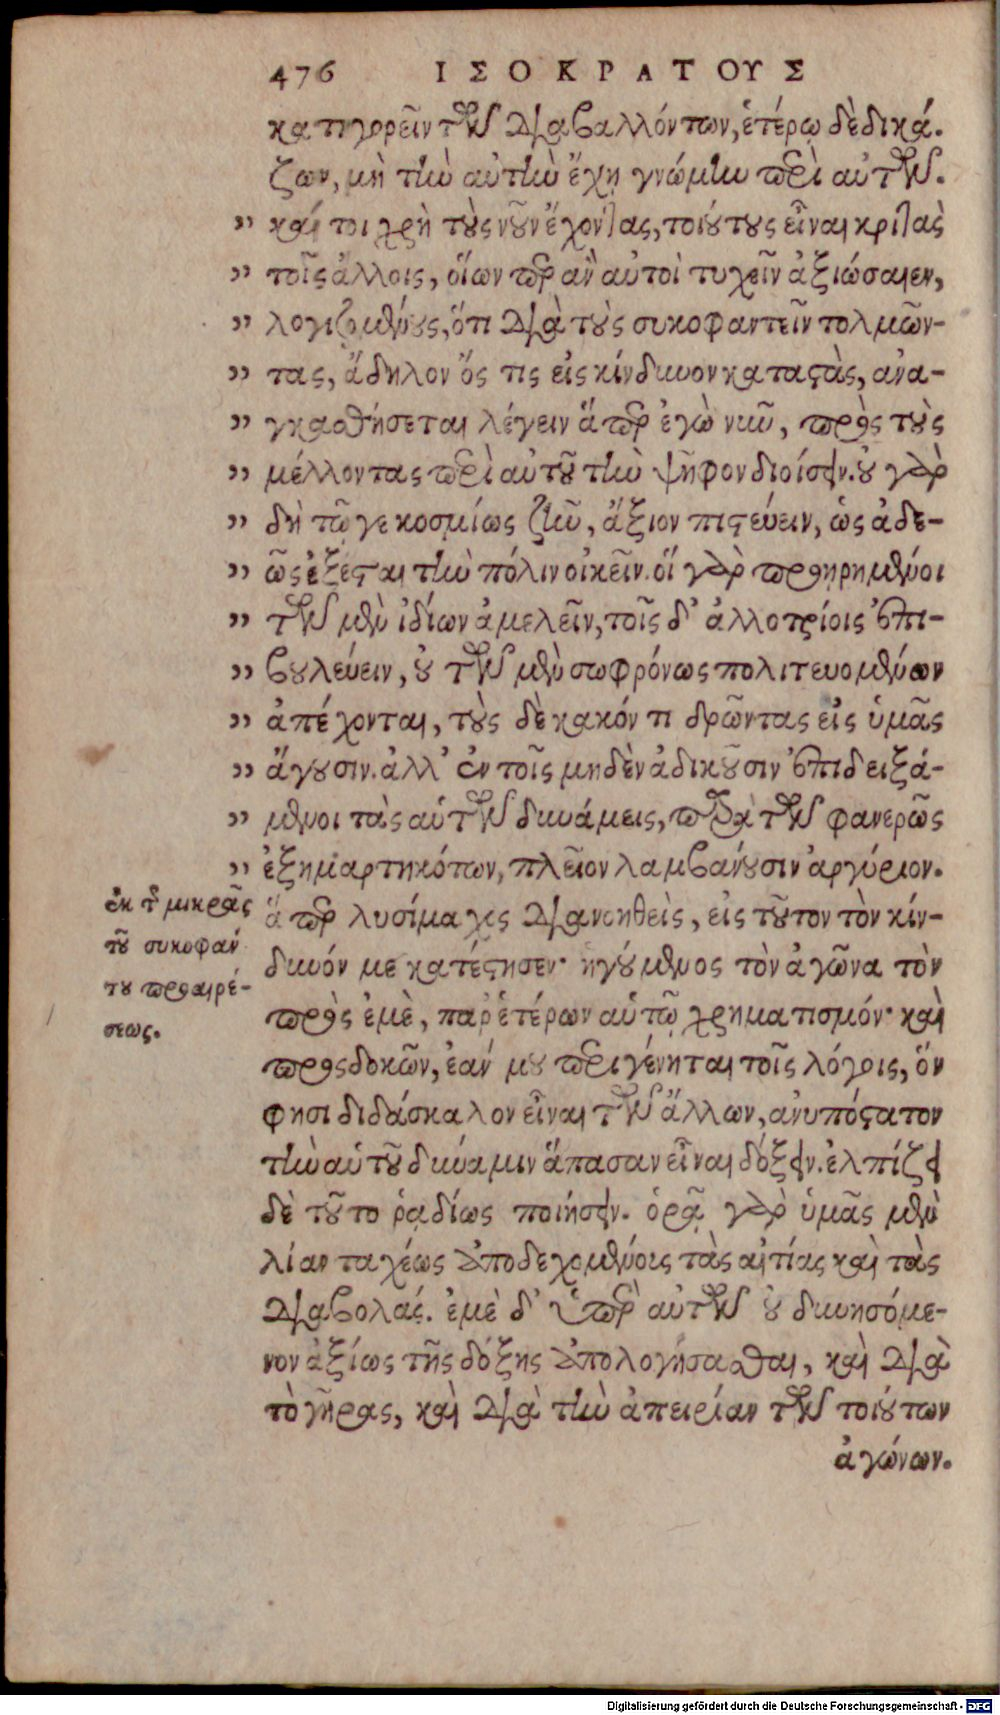 476 ΙΣΟΚΡΑΤΟΥΣ
κατηγορεῖν τῶν διαβαλλόντων, ἑτέρῳ δὲ δικά.
ζων, μὴ τὴν αὐτὴν ἔχῃ γνώμην περὶ αὐτῶν.
" καίτοι χρὴ τοὺς νοῦν ἔχοντας, τοιούτους εἶναι κριτὰς
" τοῖς ἄλλοις, οἵων περ ἂν αὐτοὶ τυχεῖν ἀξιώσαιεν,
" λογιζομένους, ὅτι διὰ τοὺς συκοφαντεῖν τολμῶν-
" τας, ἄδηλον ὅς τις εἰς κίνδυνον καταστὰς, ἀνα-
" γκασθήσεται λέγειν ἅπερ ἐγὼ νῦν, πρὸς τοὺς
" μέλλοντας περὶ αὐτοῦ τὴν ψῆφον διοίσειν. οὐ γὰρ
" δὴ τῷ γε κοσμίως ζῆν, ἄξιον πιστεύειν, ὡς ἀδε-
" ῶς ἐξέσται τὴν πόλιν οἰκεῖν. οἵ γὰρ προῃρημένοι
" τῶν μὲν ἰδίων ἀμελεῖν, τοῖς δ' ἀλλοτρίοις ἐπι-
" βουλεύειν, οὐ τῶν μὲν σωφρόνως πολιτευομένων
" ἀπέχονται, τοὺς δὲ κακόν τι δρῶντας εἰς ὑμᾶς
" ἄγουσιν. ἀλλ' ἐν τοῖς μηδὲν ἀδικοῦσιν ἐπιδειξά-
" μενοι τὰς αὑτῶν δυνάμεις, παρὰ τῶν φανερῶς
" ἐξημαρτηκότων, πλεῖον λαμβάνουσιν ἀργύριον.
ἅπερ λυσίμαχος διανοηθεὶς, εἰς τοῦτον τὸν κίν-
δυνόν με κατέστησεν· ἡγούμενος τὸν ἀγῶνα τὸν
πρὸς ἐμὲ, παρ' ἑτέρων αὑτῷ χρηματισμόν· καὶ
προςδοκῶν, ἐάν μου περιγένηται τοῖς λόγοις, ὅν
φησι διδάσκαλον εἶναι τῶν ἄλλων, ἀνυπόστατον
τὴν αὑτοῦ δύναμιν ἅπασαν εἶναι δόξειν. ἐλπίζει
δὲ τοῦτο ῥᾳδίως ποιήσειν. ὁρᾷ γὰρ ὑμᾶς μὲν
λίαν ταχέως ἀποδεχομένους τὰς αἰτίας καὶ τὰς
διαβολάς. ἐμὲ δ' ὑπὲρ αὐτῶν οὐ δυνησόμε-
νον ἀξίως τῆς δόξης ἀπολογήσασθαι, καὶ διὰ
τὸ γῆρας, καὶ διὰ τὴν ἀπειρίαν τῶν τοιούτων
ἀγώνων.
ἐκ τῆς μικρᾶς
τοῦ συκοφάν
του προαιρέ-
σεως.
Digitalisierung gefördert durch die Deutsche Forschungsgemeinschaft - DFG